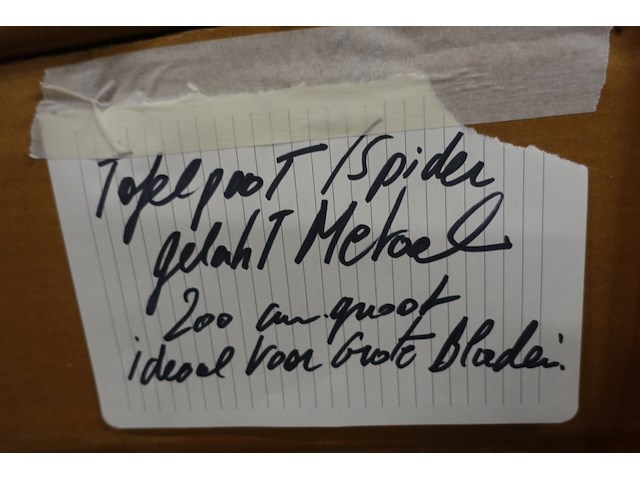 Tafelpoot / Spider
gelakt Metael
200 cm groot
ideael voor Grote Bladen.